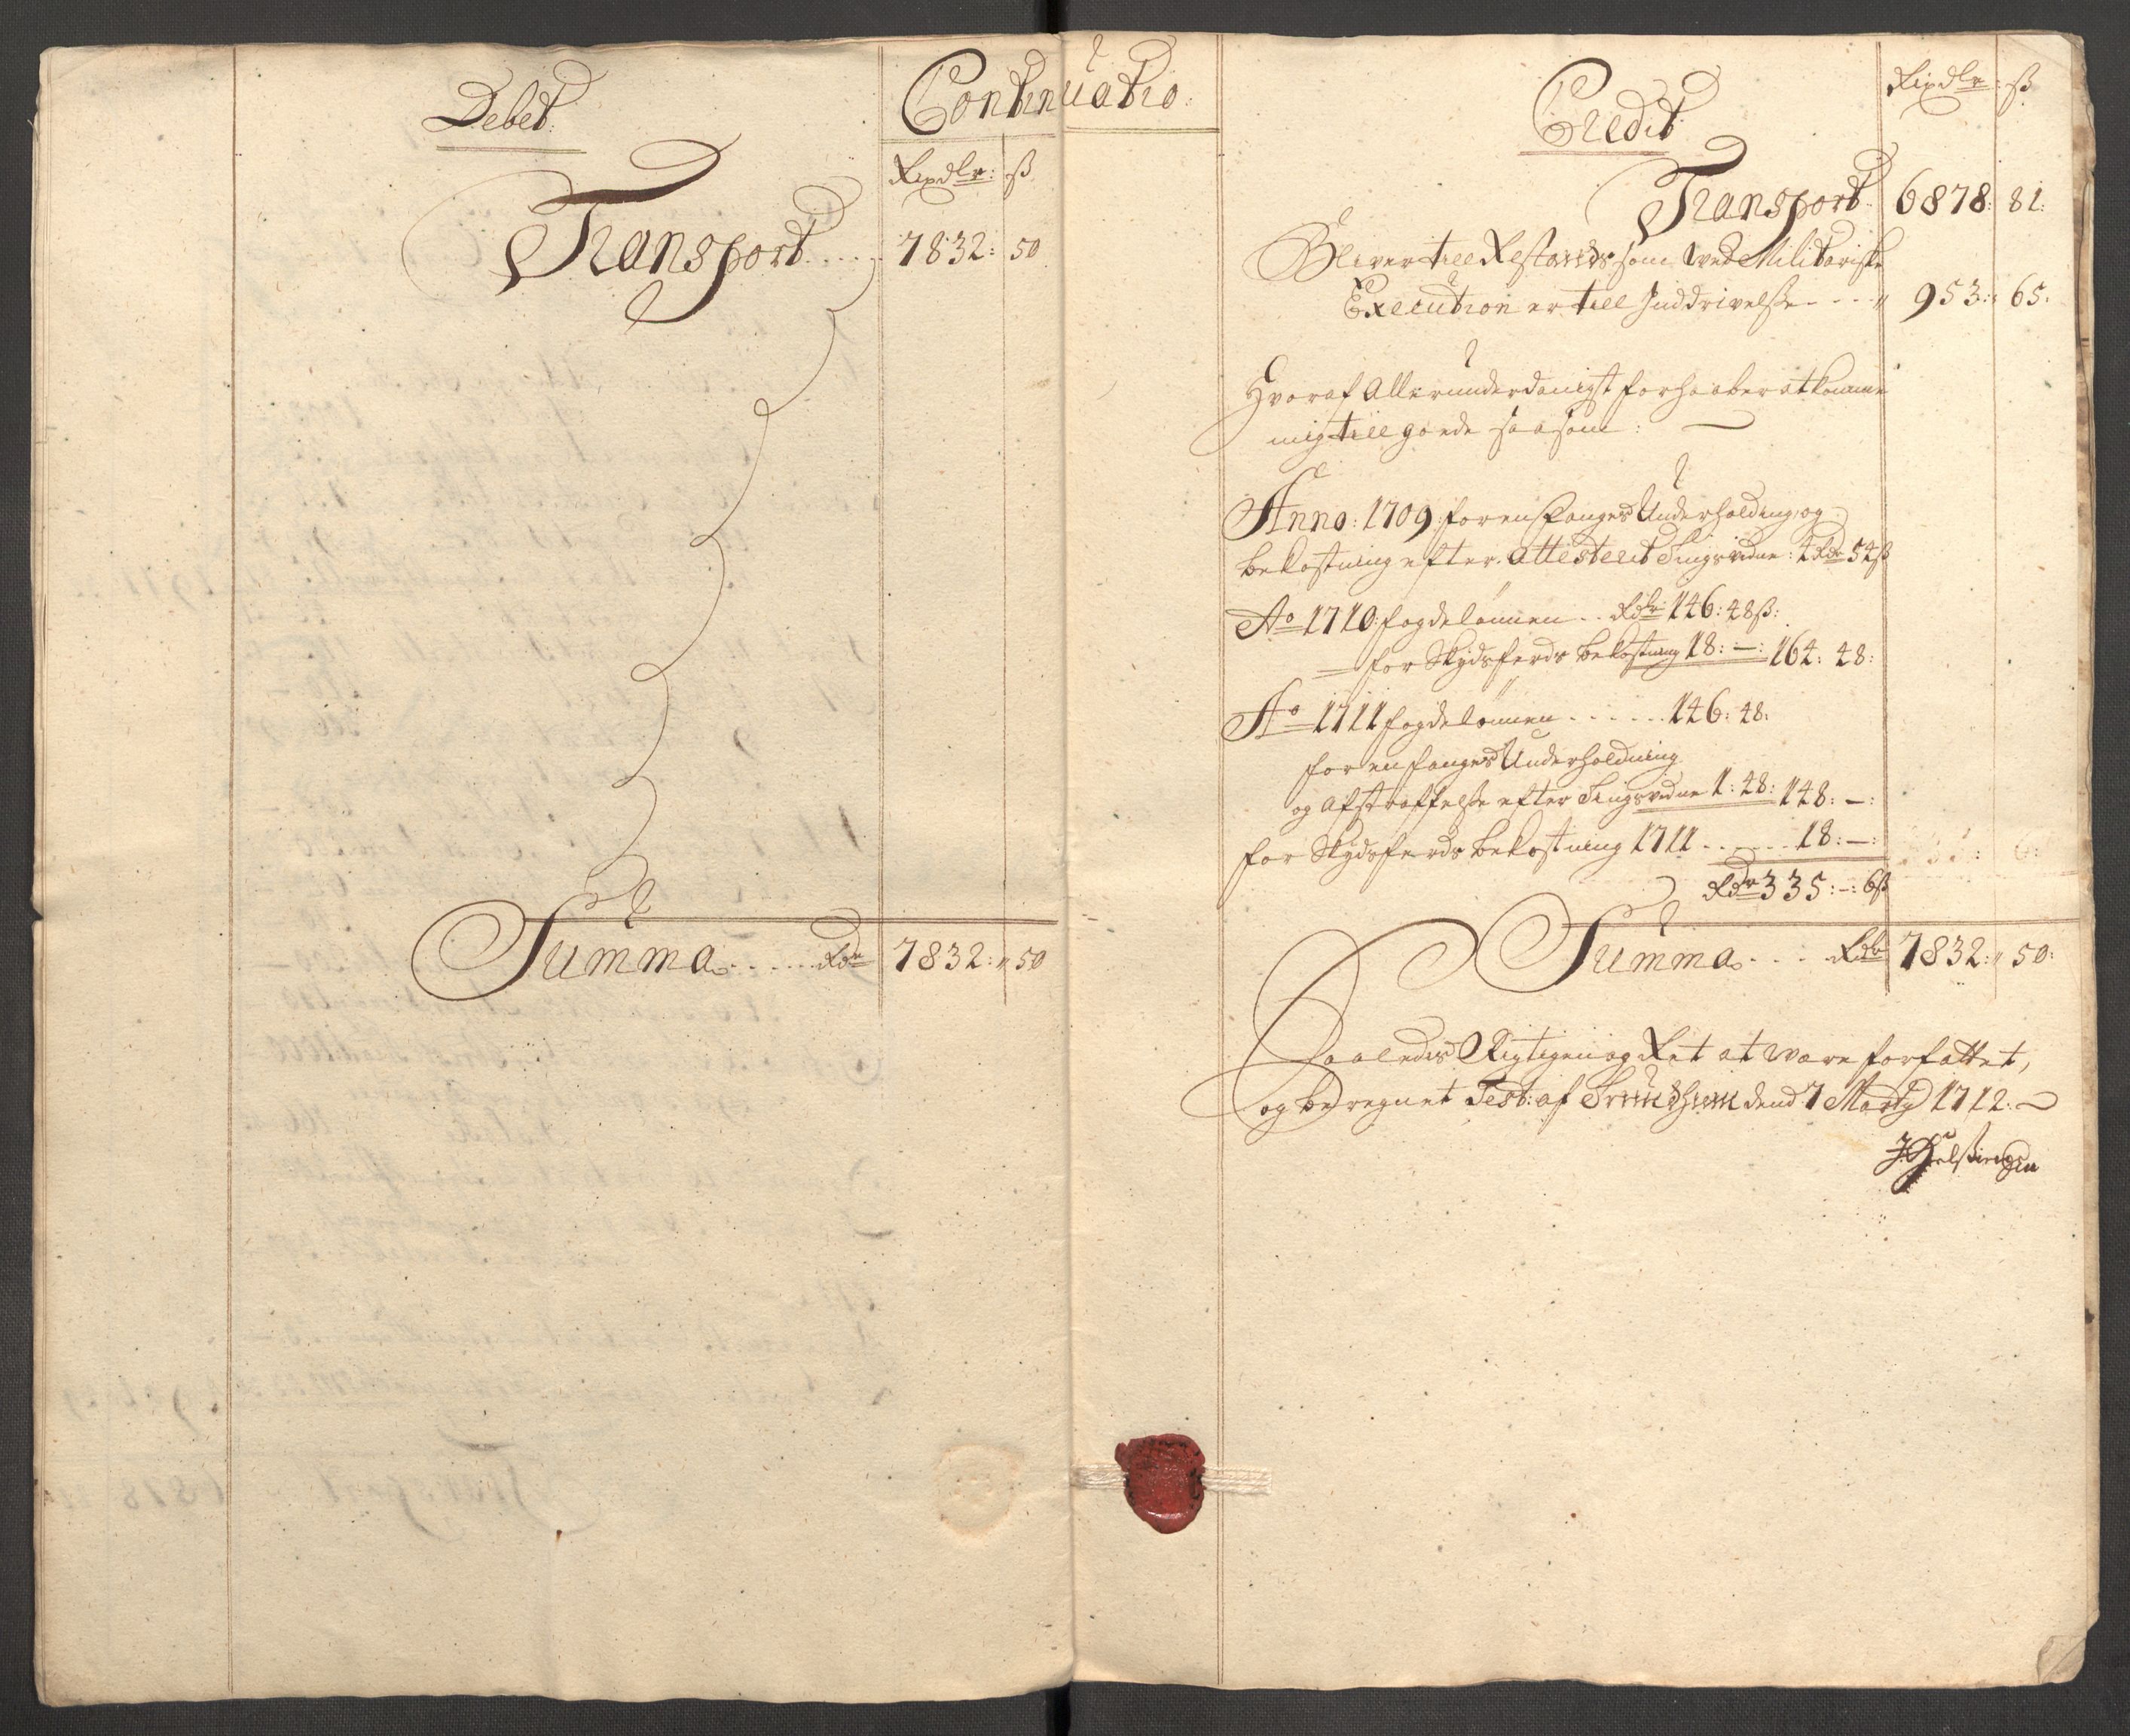 Debet
Continuatio:
Rixdlr: ß
Transport..... 7832: 50
Summa...... Rdr 7832: 50
Credit
Rixdlr: ß
Transport 6878: 81:
Bliver till Restands som wed Militariske
Execution er till Inddrivelse - - - 953: 65.
Hvoraf Allerunderdanigst forhaaber at komme
mig till goede saasom:
Anno: 1709 for en Fanges Underholding, og
bekostning efter Attesterit Tingsvidne: 4 Rdr 54ß
Ao 1710 fogdelønnen.. Rdr 146: 48ß:
for Skydsferds bekostning 18: —: 164: 48:
Ao 1711 fogdelønnen...... 146: 48:
for en fanges Underholdning
og Afstraffelse efter Tingsvidne 1: 48: 148: —:
for Skydsferds bekostning 1711...... 18: —:
Rdr 335: —: 6ß
Summa.... Rdr 7832: 50:
Saaledes Rigtigen og Ret at were forfattet,
og beregnet Test: af Trundhiem dend 7 Martij 1712.